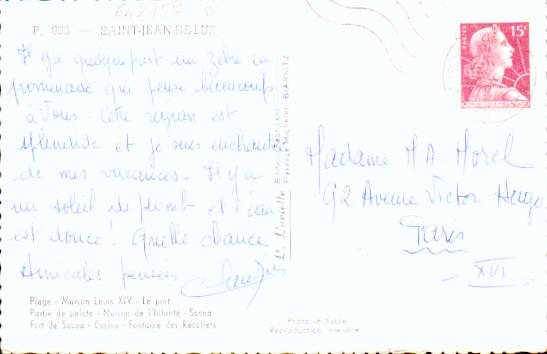 P. 990 — SAINT-JEAN-DE-LUZ
Il y a quelque part un zèbre en
promenade qui pense beaucoup
à Vous. Cette région est
splendide et je suis enchantée
de mes vacances. Il y a
un soleil de plomb et l'eau
est douce ! Quelle chance
Amicales pensées
Plage - Maison Louis XIV - Le port
Partie de pelote - Maison de l'Infante - Socoa
Fort de Socoa - Casino - Fontaine des Récollets
BIARRITZ
15F
POSTES
Madame M A Morel
92 Avenue Victor Hugo
Paris
XVI
Photo véritable
Reproduction interdite